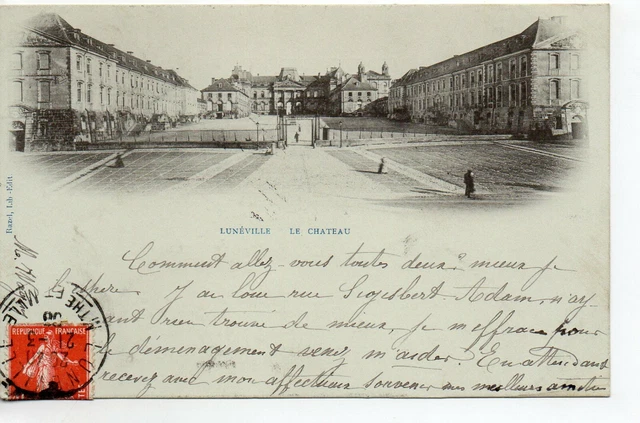 LUNÉVILLE LE CHATEAU
Bazel, Lib.-Edit
Comment allez-vous toutes deux? mieux je
l'espère. J'ai loué rue Sigisbert-Adam, n'ay-
ant rien trouvé de mieux, je m'effraie pour
le déménagement venez m'aider? En attendant
recevez avec mon affectueux souvenir mes meilleurs amitiés
REPUBLIQUE FRANÇAISE